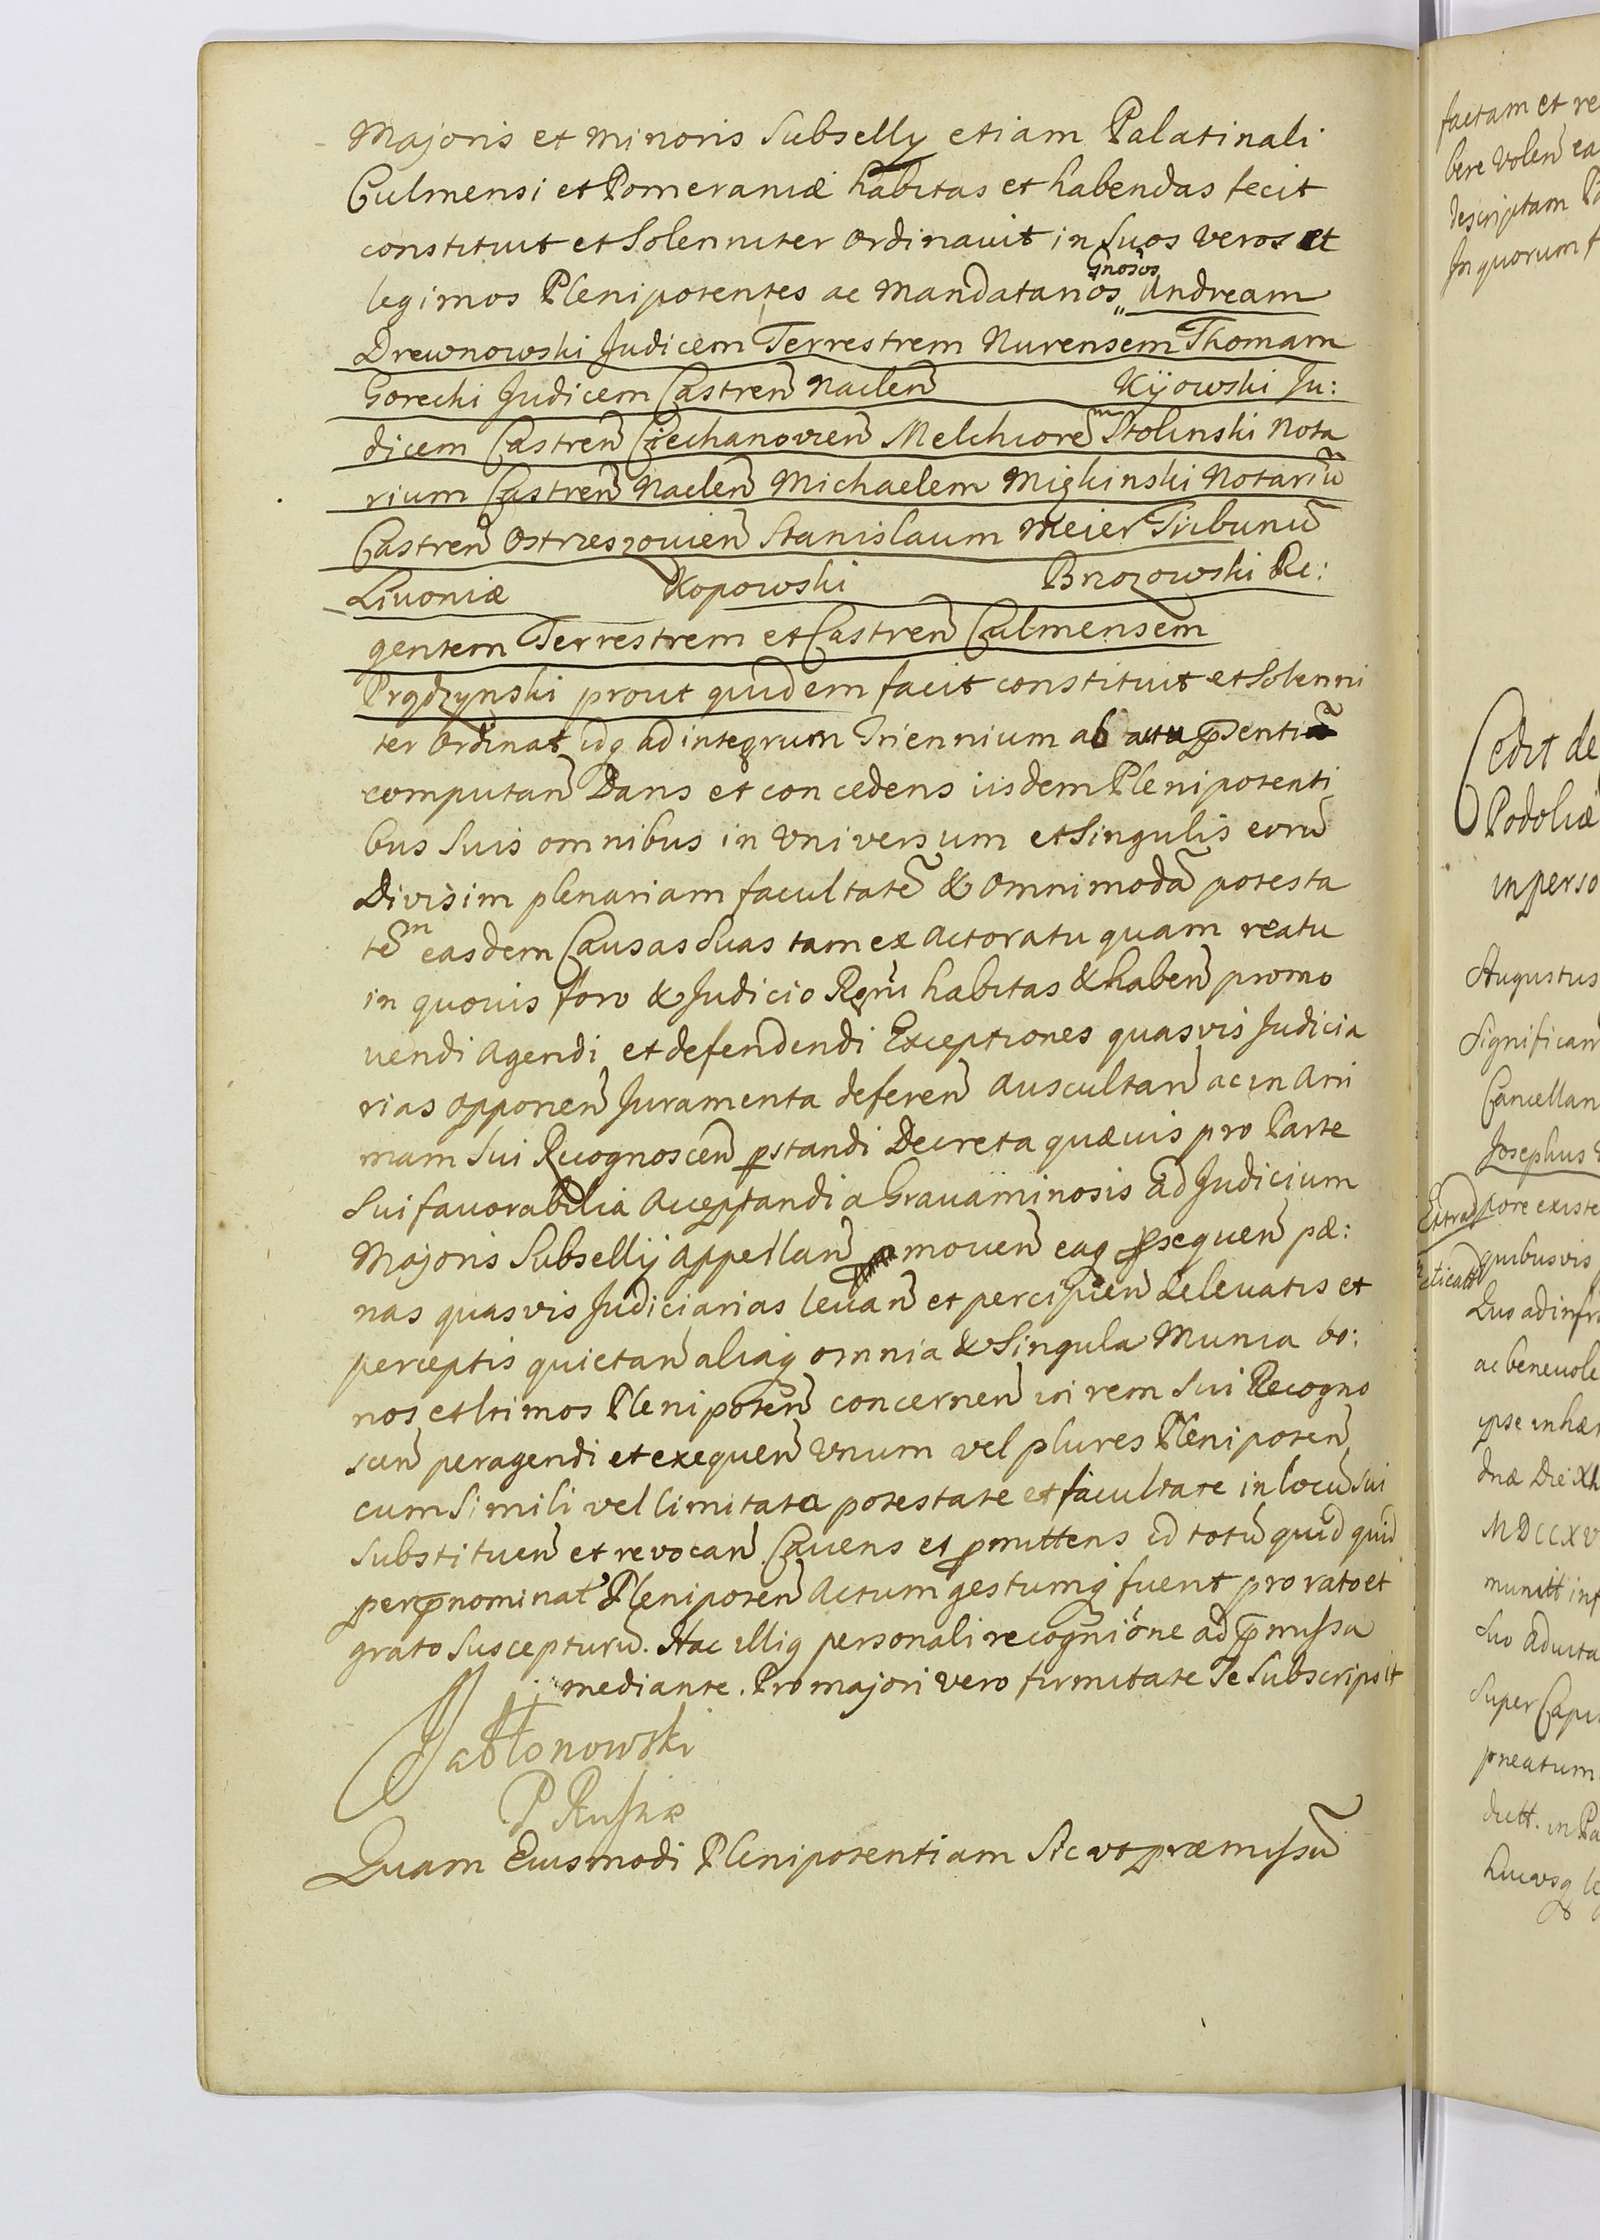 Majoris et minoris Subselly etiam Palatinali
Culmensi et Pomeraniæ habitas et habendas fecit
constituit et Solenniter ordinavit in Suos veros et
legimos Plenipotentes ac Mandatarios Gnosos Andream
Drewnowski Judicem Terrestrem Nurensem Thomam
Gorecki Judicem Castren̄ Naclen̄ Kÿowski Ju:
dicem Castren̄ Ciechanovien̄ Melchiorem̄ Stolinski Nota
rium Castren̄ Naclen̄ Michaelem Notariū
Castren̄ Ostrzeszovien̄ Stanislaum Meier Tribunū
Livoniæ Kopowski Brzozowski Re:
gentem Terrestrem et Castren̄ Culmensem
Prądzynski prout quidem facit constituit et Solenni
ter Ordinat idq ad integrum Triennium ab actu p̄sentiū
computan̄ Dans et concedens iisdem Plenipotenti
bus Suis omnibus in Universum et Singulis eorū
Divisim plenariam facultatē & omnimodā potesta
tem̄ easdem Causas Suas tam ex Actoratu quam reatu
in quovis foro & Judicio Regni habitas & haben̄ promo
vendi Agendi et defendendi Exceptiones quasvis Judicia
rias opponen̄ Juramenta deferen̄ Auscultan̄ ac in Ani
mam Sui Recognoscen̄ p̄standi Decreta quævis pro Parte
Sui favorabilia Acceptandi a Gravaminosis ad Judicium
Majoris Subsellij appellan̄ moven̄ eaq p̄sequen̄ pæ:
nas quasvis Judiciarias levan̄ et percipien̄ de levatis et
perceptis quietan̄ aliaq omnia & Singula Munia bo:
nos et ltimos Plenipoten̄ concernen̄ in rem Sui Recogno
scen̄ peragendi et exequen̄ Unum vel plures Plenipoten̄
cum Simili vel limitata potestate et facultate in locū Sui
Substituen̄ et revocan̄ Cavens et p̄mittens id totū quid quid
per p̄nominat Plenipoten̄ Actum gestumq fuerit pro rato et
grato Suscepturū. Hac illiq personali recognione ad p̄missa
mediante. Pro majori vero firmitate Se Subscripsit
Jabłonowski
P Ruskie
Quam Eiusmodi Plenipotentiam Sic ut præmissū
factam et re
bere volen̄ ea
descriptam
In quorum f
Cedit de
Podoliæ
in perso
Augustus
Significam
Cancellan
Josephus
pore existe
quibusvis
Duo ad infr
ac benevole
ipse inhær
dnæ Die
MDCCXV
munitt inf
Suo
Super Capi
in Pa